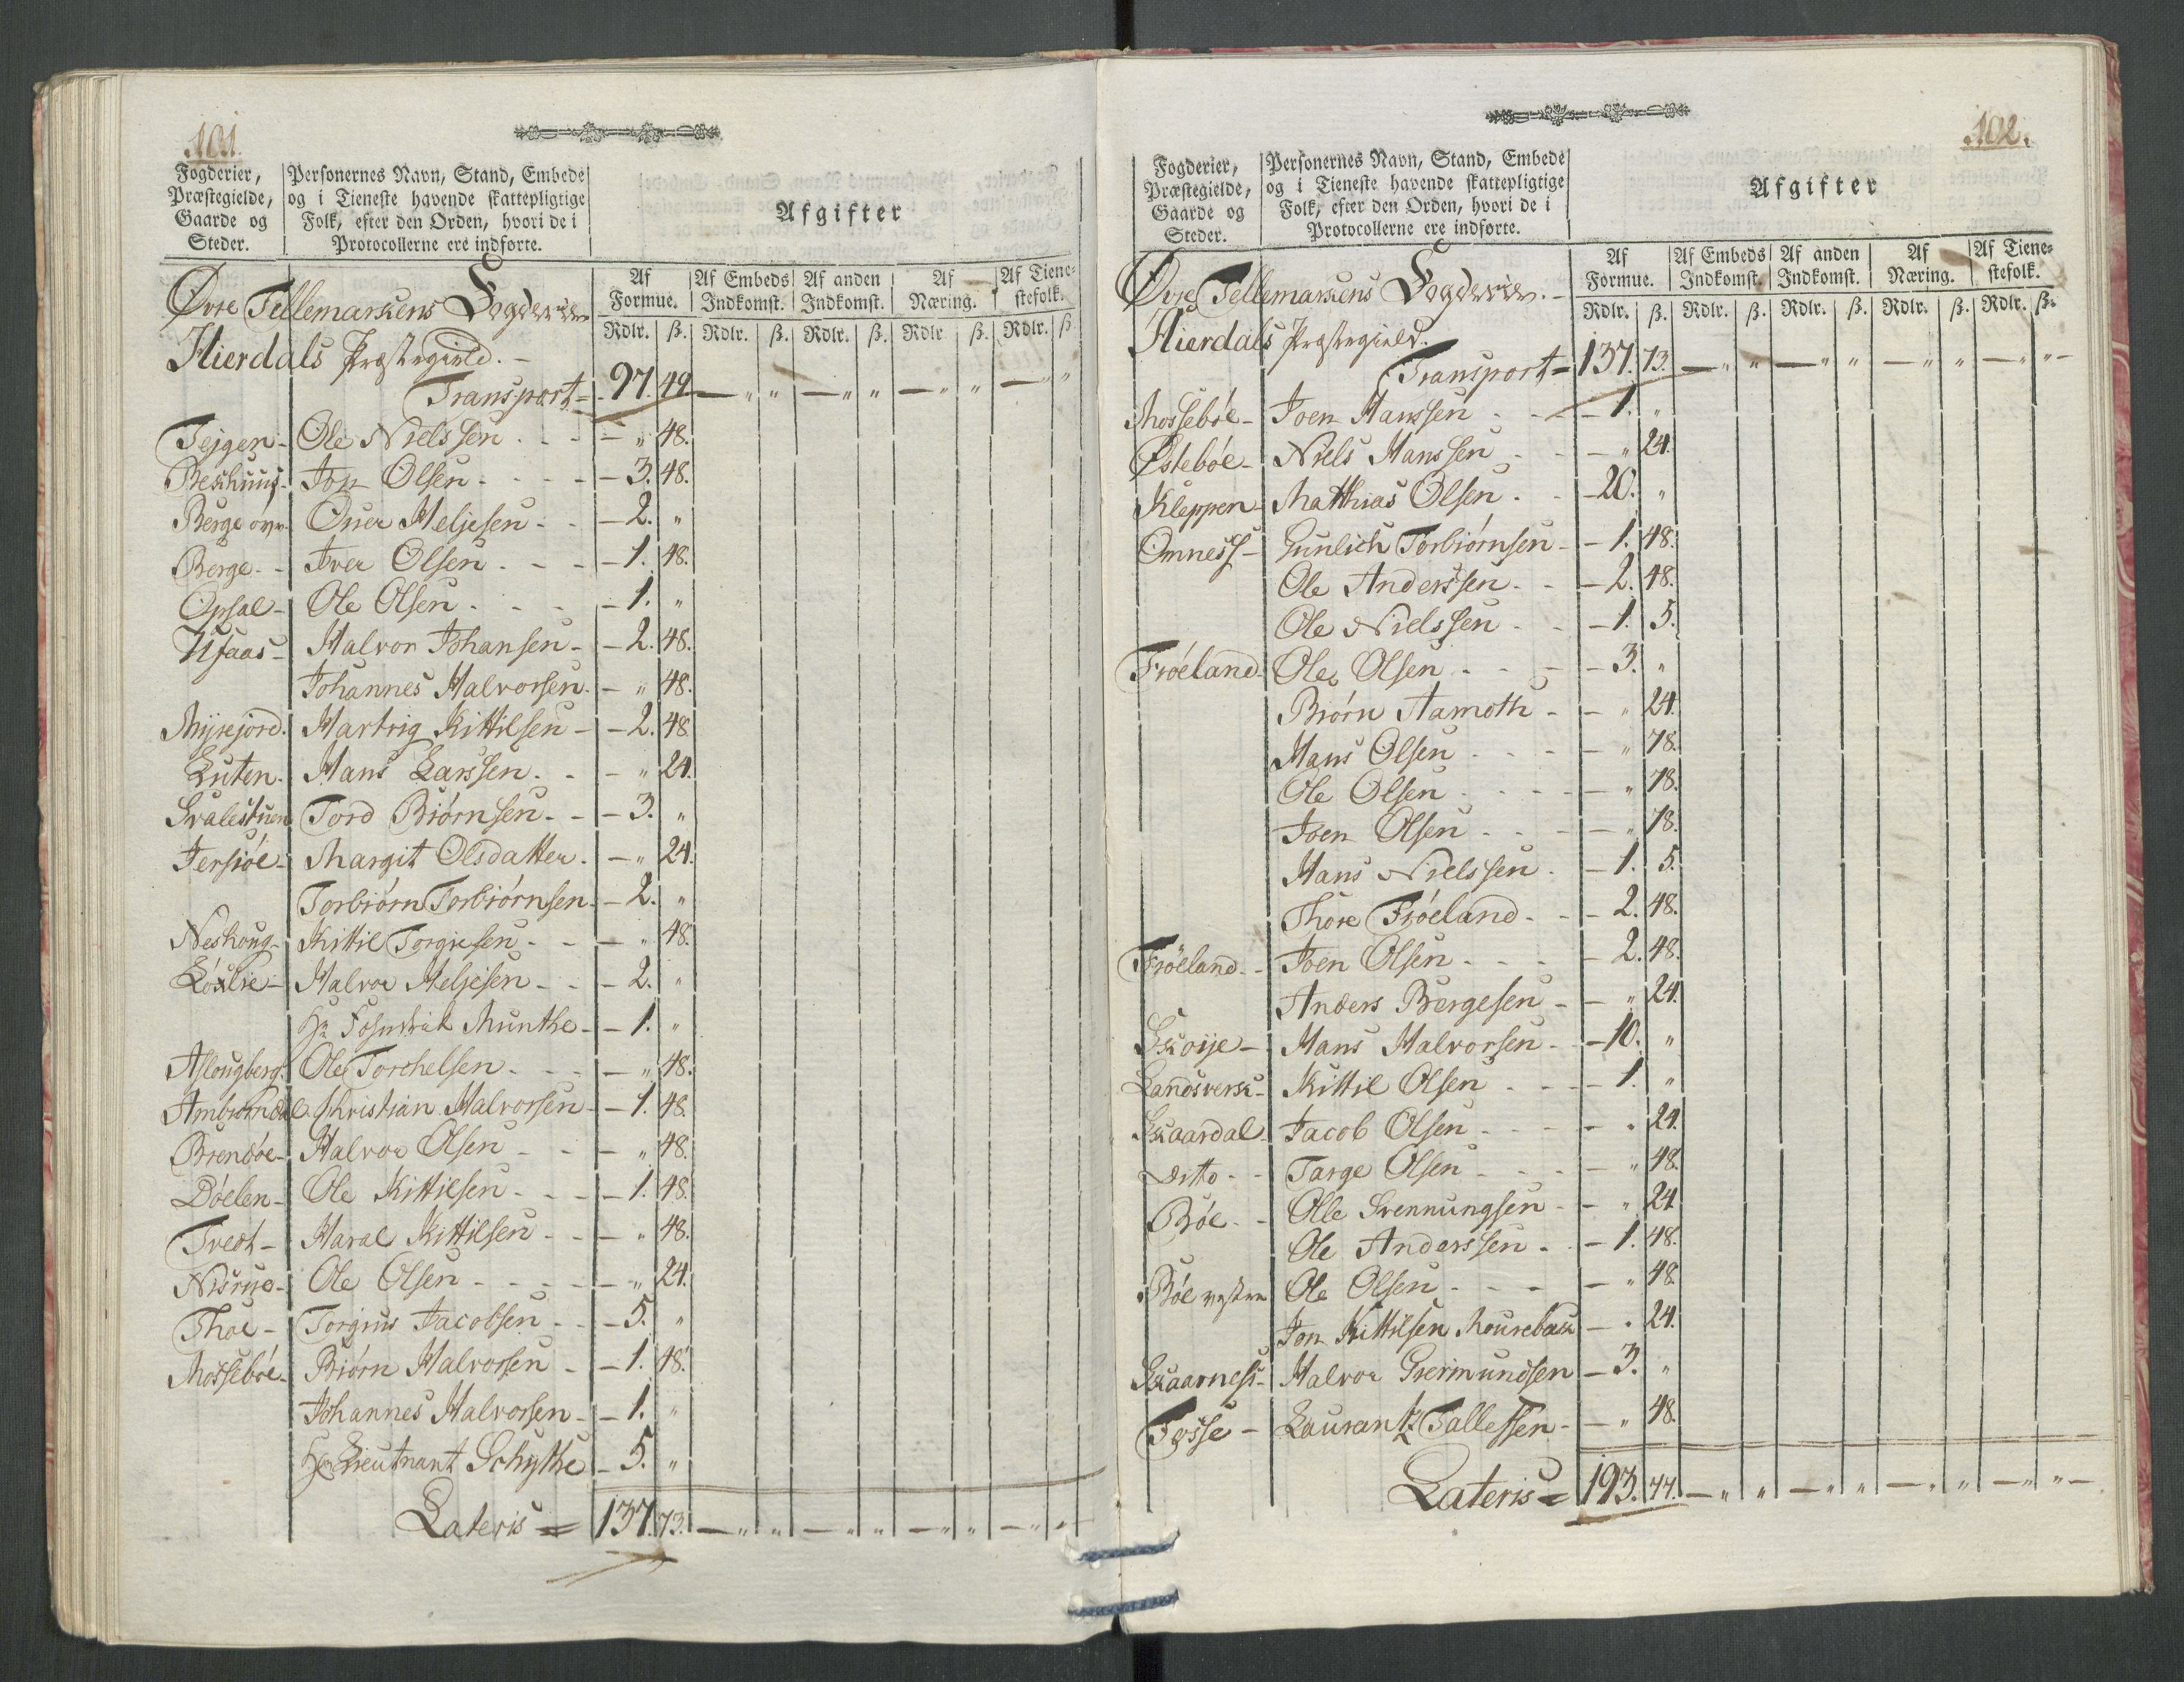 101.
Fogderier, Præstegielde, Gaarde og Steder.
Personernes Navn, Stand, Embede og i Tieneste havende skattepligtige Folk, efter den Orden, hvori de i Protocollerne ere indførte.
Afgifter
Af Formue. Af Embeds Indkomst. Af anden Indkomst. Af Næring. Af Tienestefolk.
Rdlr. ß. Rdlr. ß. Rdlr. ß. Rdlr ß. Rdlr. ß
Øvre Tellemarkens Fogderie
Hierdals Præstegield. -
Transport = 97. 49. — " " — " " — " " — " "
Tejgen - Ole Nielssen - " 48.
Jon Olsen - 3. 48.
Berge øvr. Over Heljesen - 2. "
Berge - Iver Olsen - 1. 48.
Opsal - Ole Olsen - 1. "
Ufaas - Halvor Johansen - 2. 48.
Johannes Halvorsen - " 48.
Myrejord. Hartvig Kittilsen - 2. 48
Luten. Hans Larssen - " 24.
Svalestuen Tord Biørnsen - 3. "
Jersiøe - Margit Olsdatter - " 24.
Torbiørn Torbiørnsen - 2. "
Neshoug - Kittil Torgiesen - " 48.
Løxlie - Halvor Heljesen - 2. "
Munthe - 1. "
Aslougberg. Ole Torchelsen - " 48.
Ambiørndal Christian Halvorsen - 1. 48.
Brendøe - Halvor Olsen - " 48.
Døelen - Ole Kittilsen - 1. 48.
Tvedt - Haral Kittilsen - " 48.
Nisrue - Ole Olsen - " 24.
Thoe - Torgius Jacobsen - 5. "
Mossebøe - Biørn Halvorsen - 1. 48.
Johannes Halvorsen - 1. "
Hr Lieutnant Schythe - 5. "
Lateris = 137. 73. — " " — " " — " " — " "
102.
Fogderier, Præstegielde, Gaarde og Steder.
Personernes Navn, Stand, Embede og i Tieneste havende skattepligtige Folk, efter den Orden, hvori de i Protocollerne ere indførte.
Afgifter
Af Formue. Af Embeds Indkomst. Af anden Indkomst. Af Næring. Af Tienestefolk.
Rdlr. ß. Rdlr. ß. Rdlr. ß. Rdlr. ß. Rdlr. ß.
Øvre Tellemarkens Fogderie. -
Hierdals Præstegield.
Transport = 137. 73. — " " — " " — " " — " "
Mossebøe - Joen Hanssen - 1. "
Østebøe - Niels Hanssen - " 24.
Kleppen - Matthias Olsen - 20. "
Omness - Gunlich Torbiørnsen - 1. 48.
Ole Anderssen - 2. 48.
Ole Nielssen - 1. 5.
Frøeland. Ole Olsen - 3. "
Biørn Aamoth - " 24.
Hans Olsen - " 78.
Ole Olsen - " 78.
Joen Olsen - " 78.
Hans Nielssen - 1. 5.
Thore Frøeland - 2. 48.
Frøeland - Joen Olsen - 2. 48.
Anders Bergesen - " 24.
Skoije - Hans Halvorsen - 10. "
Landsverk - Kittil Olsen - 1. "
Skaardal - Jacob Olsen - " 24.
Ditto - Targe Olsen - " 48.
Bøe - Olle Svennungsen - " 24
Ole Anderssen - 1. 48.
Bøe vestre Ole Olsen - " 48
Jon Kittilsen - " 24.
Skaarness - Halvor Giermundsen - 3. "
Fosse - Laurantz Tallefsen - " 48.
Lateris = 193. 77. — " " — " " — " " — " " —